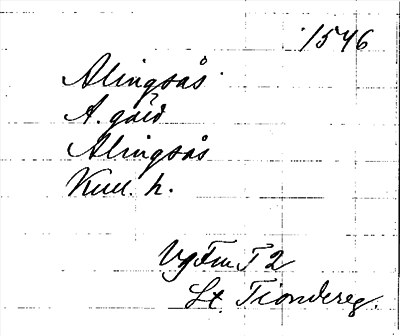 1546
Alingsås
A. gård
Alingsås
Kull. h.
Vg Fm T 2
St. Tiondereg.